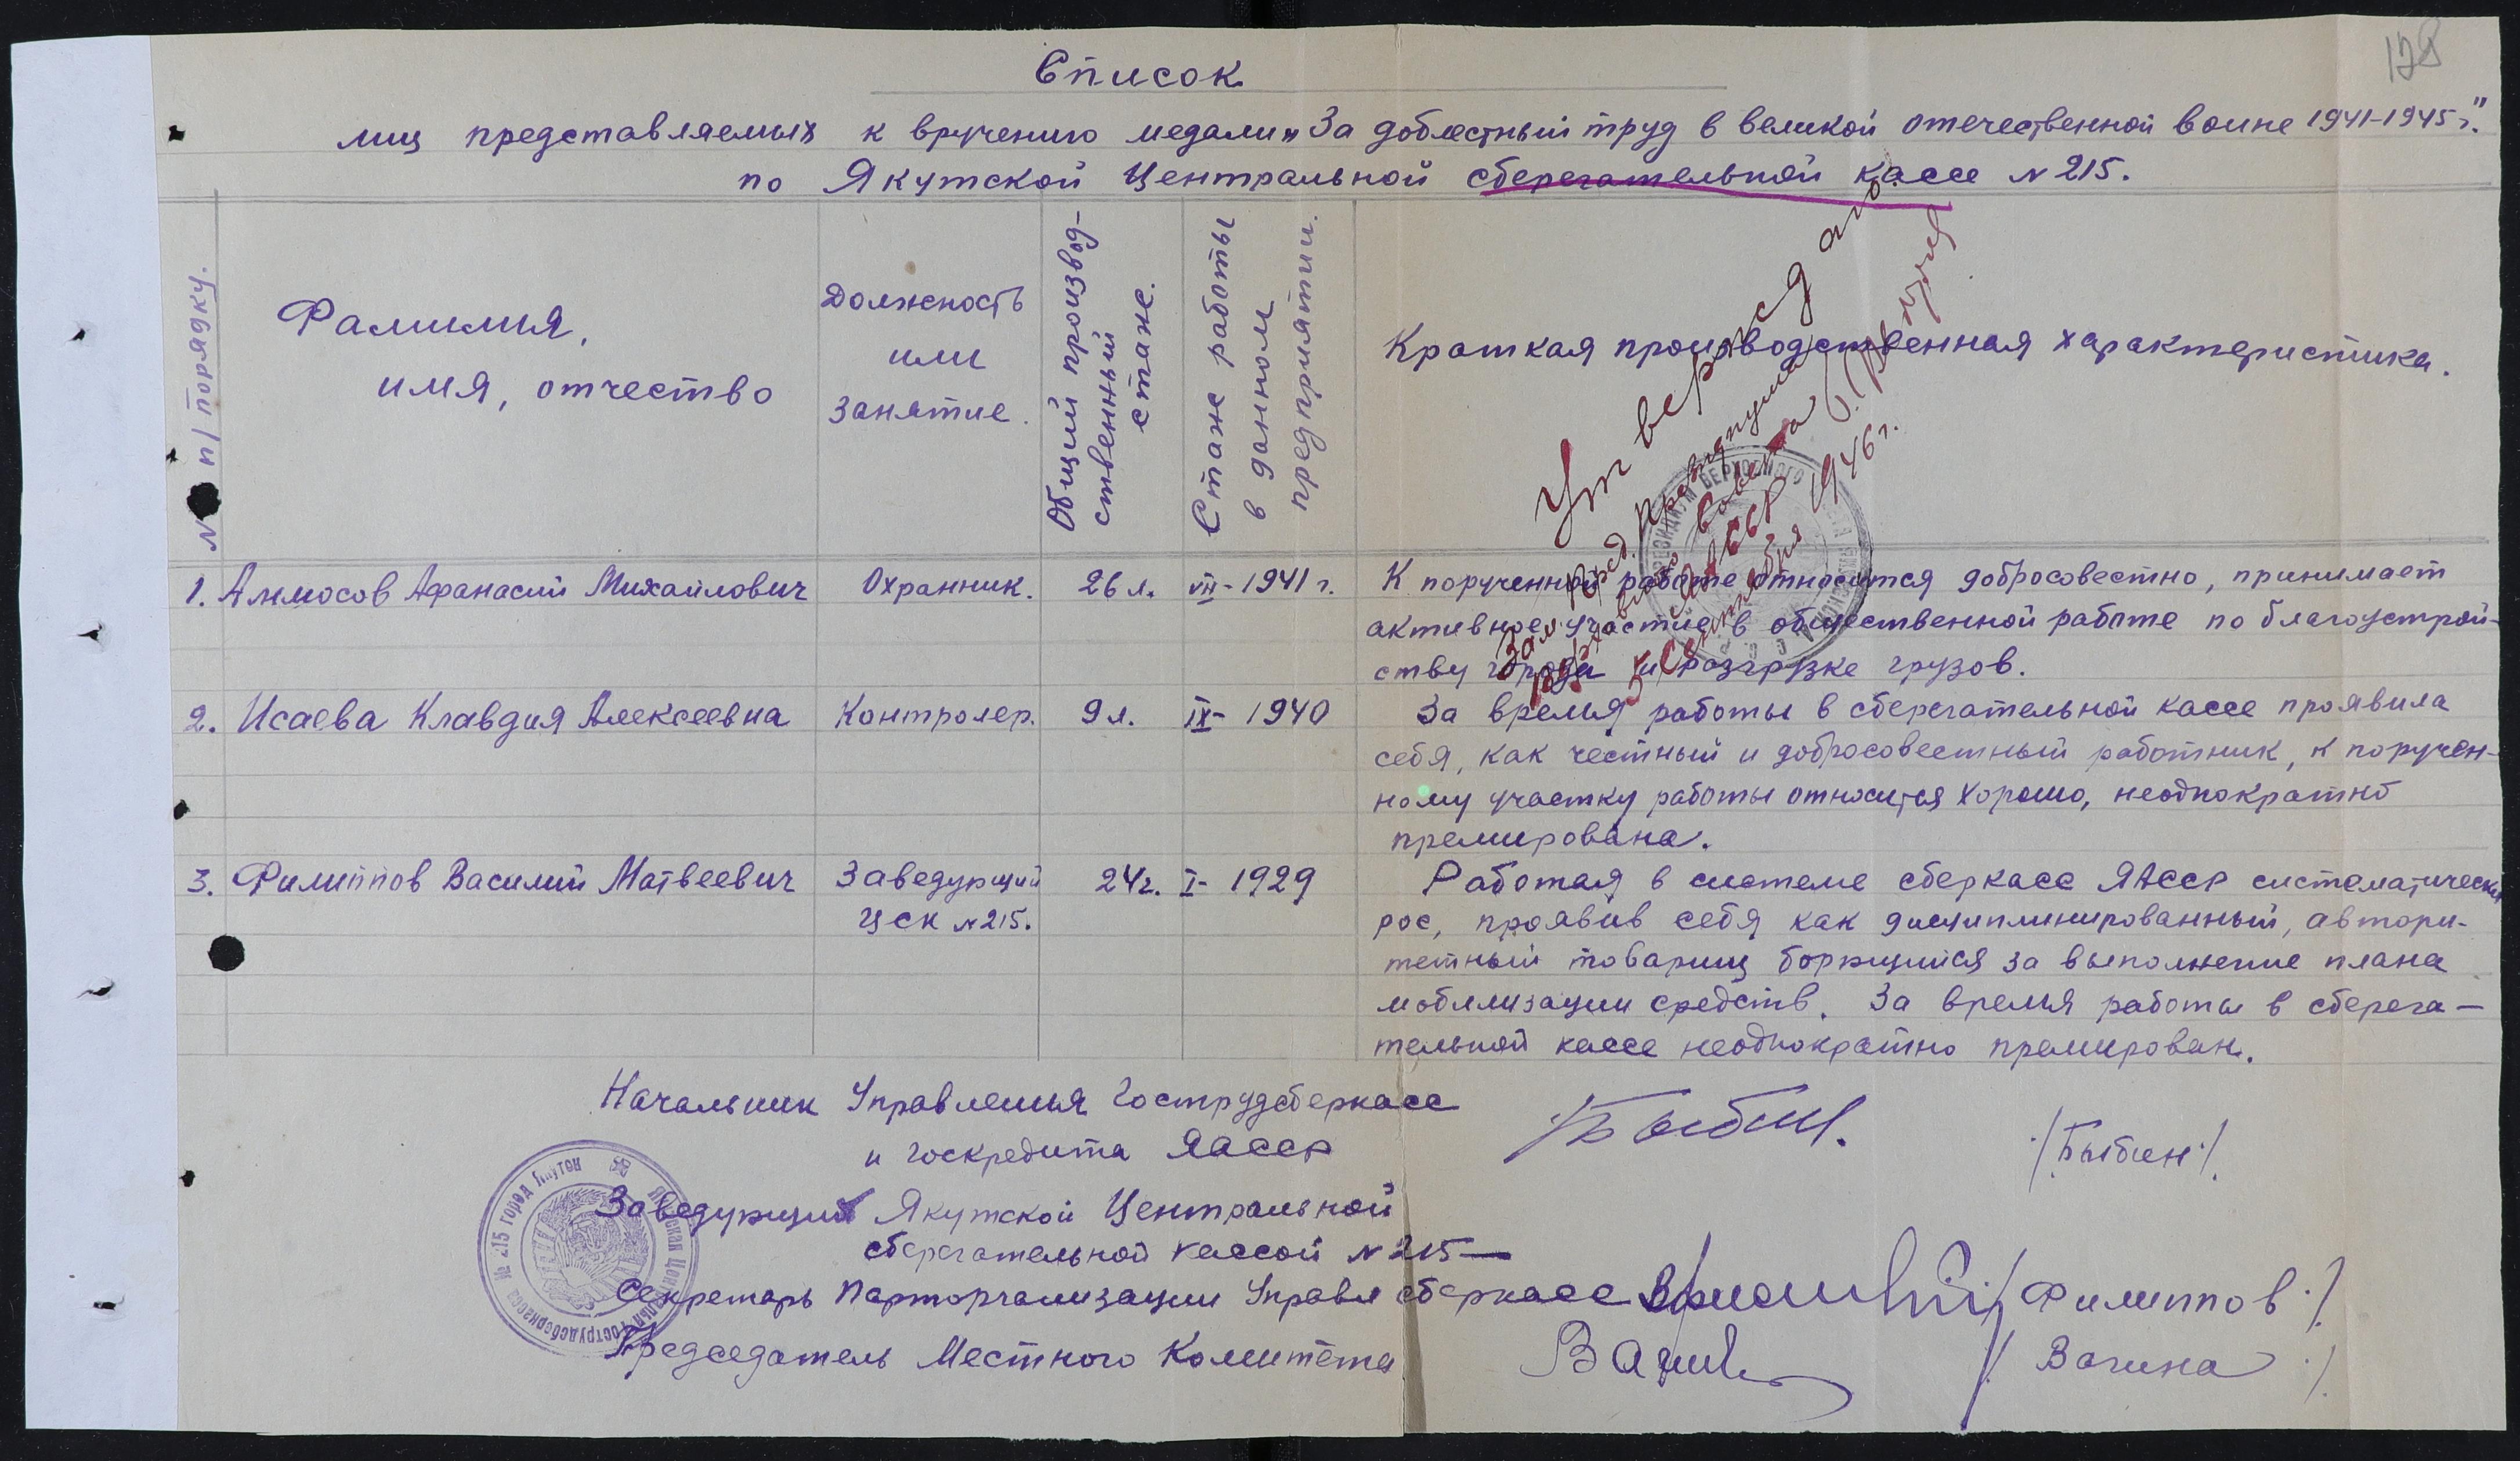 128
Список
лиц представляемых к вручению медали „За доблестный труд в великой отечественной воине 1941-1945 г."
по Якутской Центральной сберегательной кассе N 215.
N п/порядку.
Фамилия,
имя, отчество
Должность
или
занятие.
Общий производ-
ственный
стаж.
Стаж работы
в данном
предприятии.
Краткая производственная характеристика.
Утверждаю.
Зам. Пред. Президиума
Верховного Совета
ЯАССР
5 Сентября 1946 г.
1. Аммосов Афанасий Михайлович Охранник. 26 л. VII-1941 г. К порученной работе относится добросовестно, принимает
активное участие в общественной работе по благоустрой-
ству города и разгрузке грузов.
2. Исаева Клавдия Алексеевна Контролер. 9 л. IX- 1940 За время работы в сберегательной кассе проявила
себя, как честный и добросовестный работник, к поручен-
ному участку работы относится хорошо, неоднократно
премирована.
3. Филиппов Василий Матвеевич Заведующий 24 г. I- 1929 Работая в системе сберкасс ЯАССР систематически
ЦСК N 215. рос, проявив себя как дисциплинированный, автори-
тетный товарищ борющийся за выполнение плана
мобилизации средств. За время работы в сберега-
тельной кассе неоднократно премирован.
Начальник Управления Гострудсберкасс
и госкредита ЯАССР Быбин. /Быбин/.
Заведующий Якутской Центральной
сберегательной кассой N 215 —
Секретарь Парторганизации Управл сберкасс /Филиппов/.
Председатель Местного Комитета /Вагина/.
№ 215 город Якутск